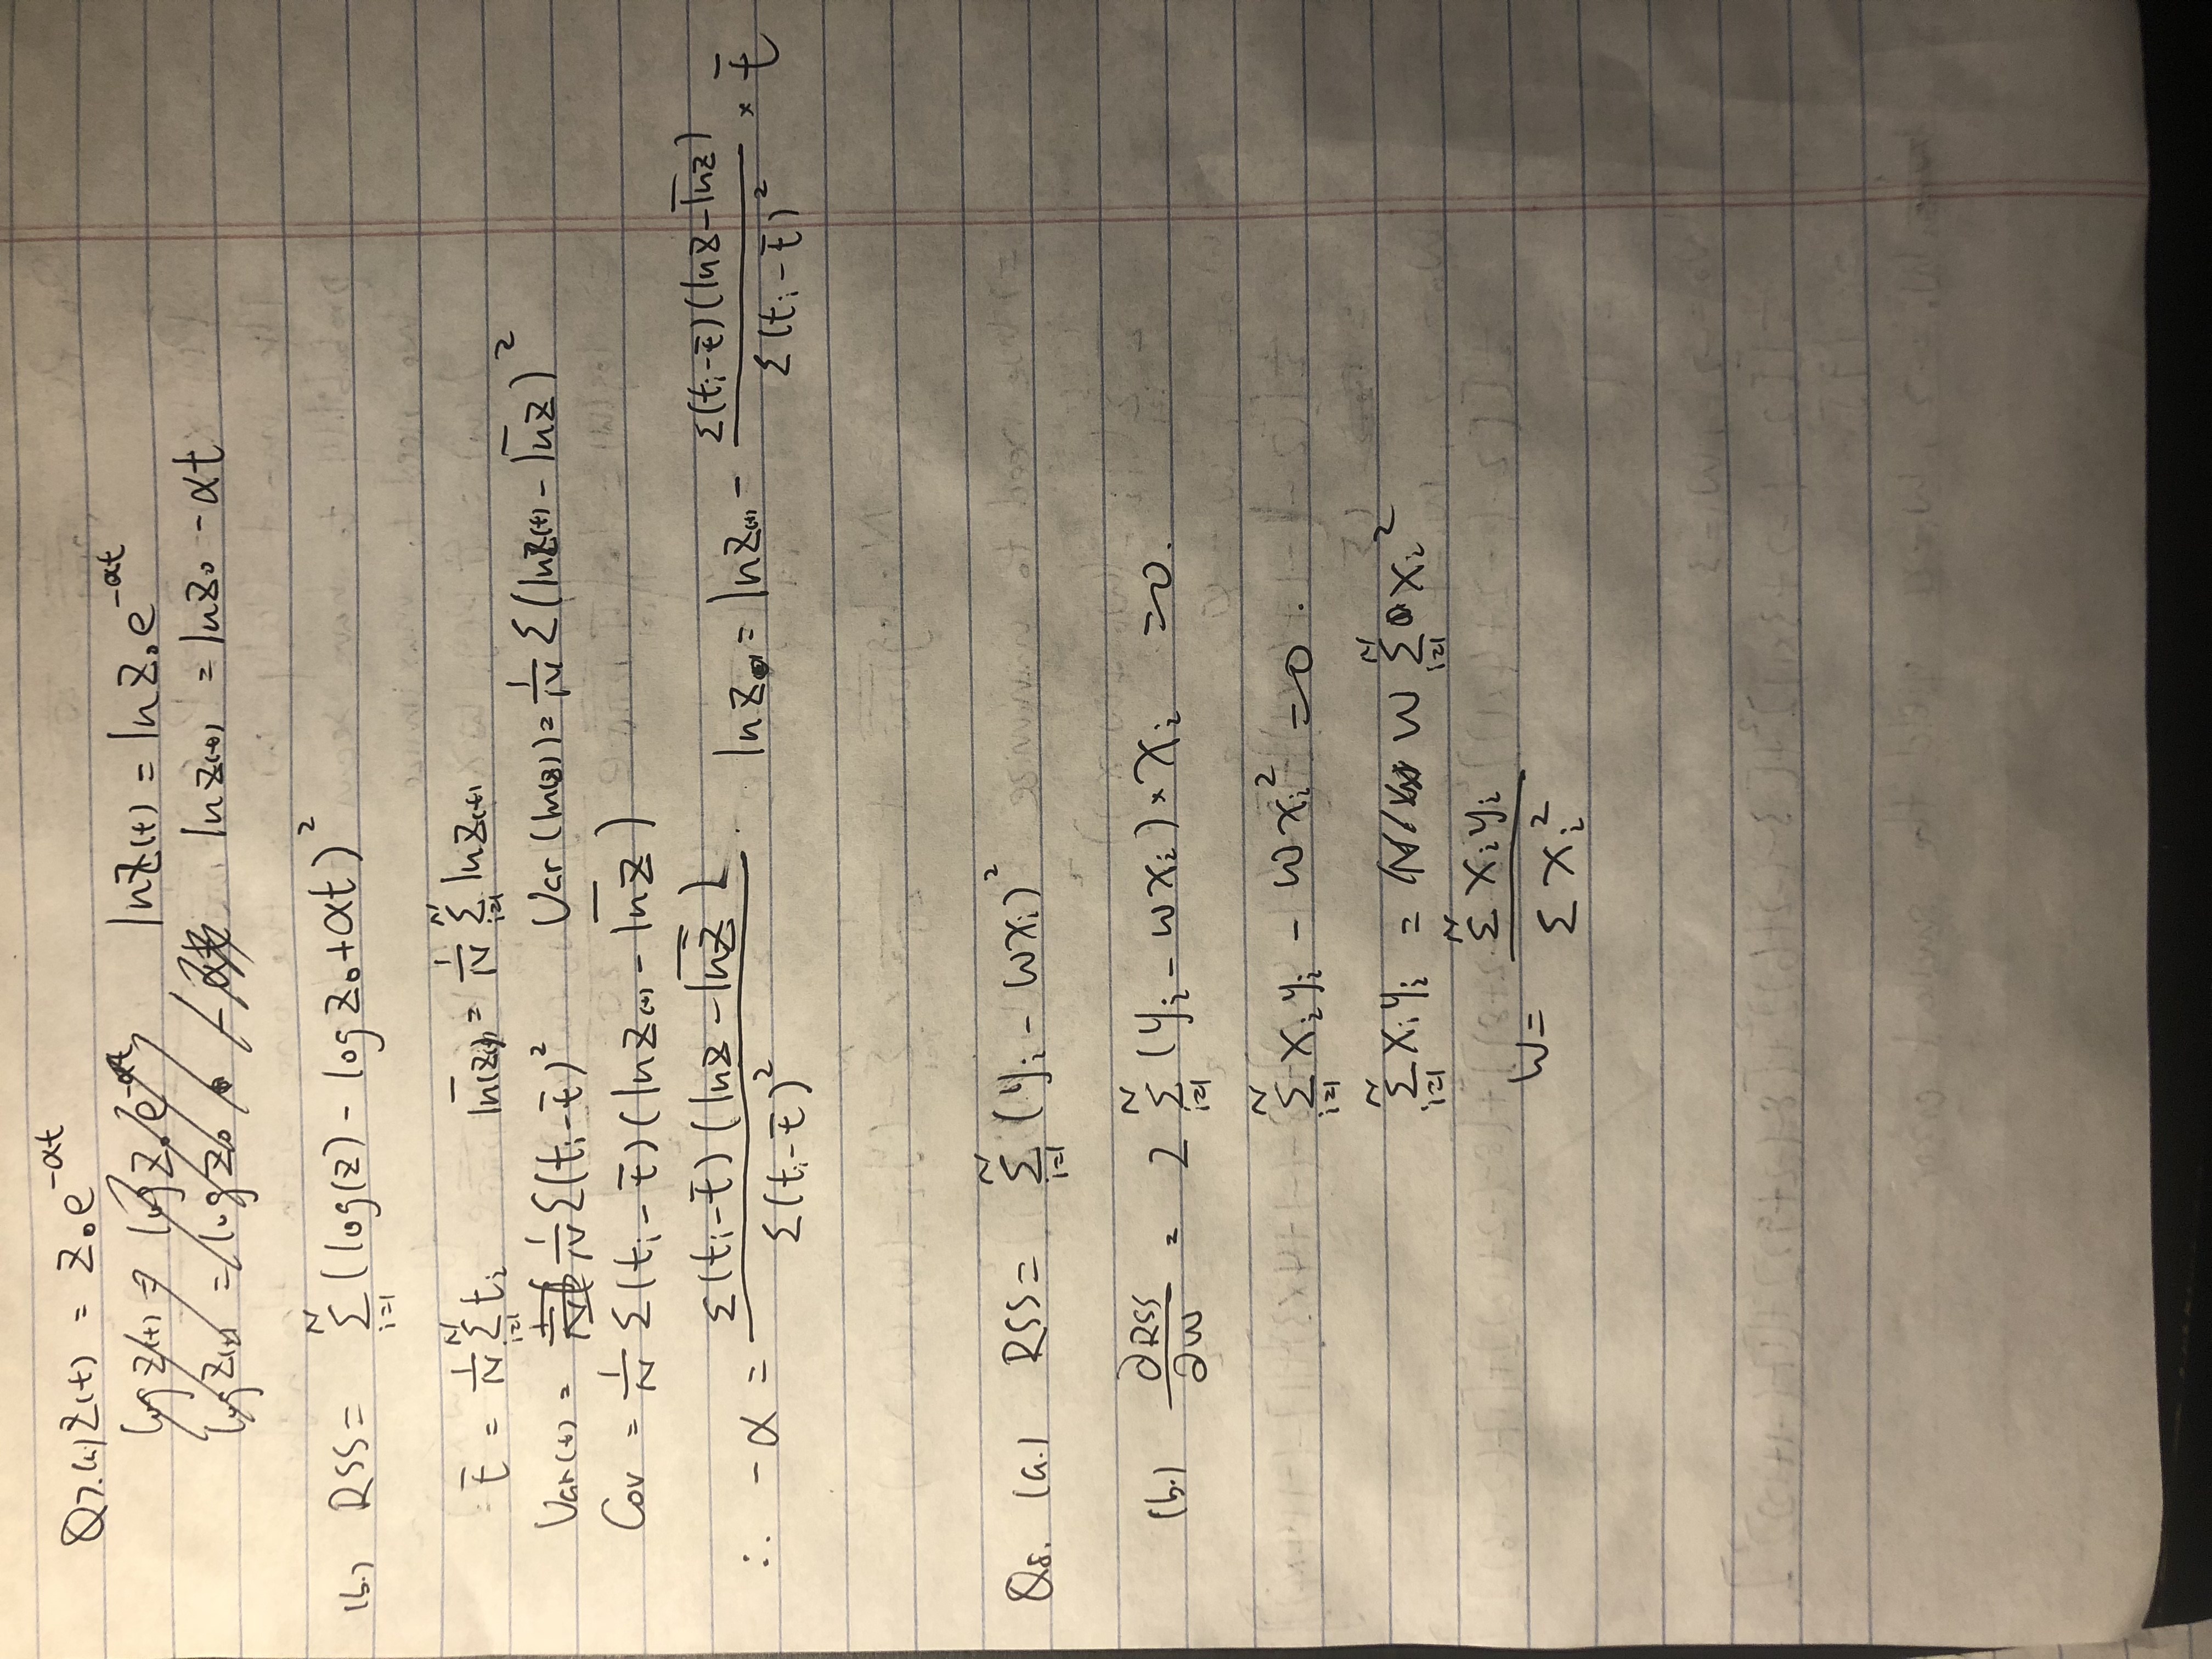 Q7.(a) Z(t) = Z₀e^{-αt}
log Z(t) = log Z₀e^{-αt} ln Z(t) = ln Z₀e^{-αt}
log Z(t) = log Z₀ - αt ln Z(t) = ln Z₀ - αt
(b.) RSS = \sum_{i=1}^{N} (log(z) - log Z₀ + αt)²
\bar{t} = \frac{1}{N} \sum_{i=1}^{N} t_i \bar{ln(Z(t))} = \frac{1}{N} \sum_{i=1}^{N} ln Z(t)
Var(t) = \frac{1}{N} Σ(t_i - \bar{t})² Var(ln(z)) = \frac{1}{N} Σ(ln Z(t) - \bar{ln Z})²
Cov = \frac{1}{N} Σ(t_i - \bar{t})(ln Z(t) - \bar{ln Z})
∴ -α = \frac{Σ(t_i - \bar{t})(ln Z - \bar{ln Z})}{Σ(t_i - \bar{t})²} . ln Z₀ = ln Z(t) - \frac{Σ(t_i - \bar{t})(ln Z - \bar{ln Z})}{Σ(t_i - \bar{t})²} × \bar{t}
Q8. (a.) RSS = \sum_{i=1}^{N} (y_i - wx_i)²
(b.) \frac{∂RSS}{∂w} = 2 \sum_{i=1}^{N} (y_i - wx_i) × x_i = 0.
\sum_{i=1}^{N} x_i y_i - wx_i² = 0.
\sum_{i=1}^{N} x_i y_i = w \sum_{i=1}^{N} x_i²
w = \frac{\sum^{N} x_i y_i}{Σ x_i²}